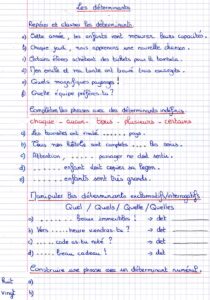 Les déterminants
Repérer et classer les déterminants
a) Cette année, les enfants vont mesurer leurs capacités.
b) Chaque jeudi, nous apprenons une nouvelle chanson.
c) Certains élèves achètent des tickets pour la tombola.
d) Mon oncle et ma tante ont trouvé trois escargots.
e) Quels magnifiques paysages !
f) Quelle équipe préfères-tu ?
Compléter les phrases avec des déterminants indéfinis
chaque - aucun - tous - plusieurs - certains
a) Les touristes ont visité ..... pays.
b) Tous nos hôtels sont complets .... les soirs.
c) Attention, ..... passager ne doit sortir.
d) ..... enfant doit copier sa leçon.
e) ..... enfants sont très grands.
Manipuler les déterminants exclamatifs/interrogatifs
Quel / Quels / Quelle / Quelles
a) ..... beaux immeubles ! → dét
b) Vers ..... heure viendras-tu ? → dét
c) ..... code as-tu noté ? → dét
d) ..... beau cadeau ! → dét
Construire une phrase avec un déterminant numéral
Huit a)
Vingt b)